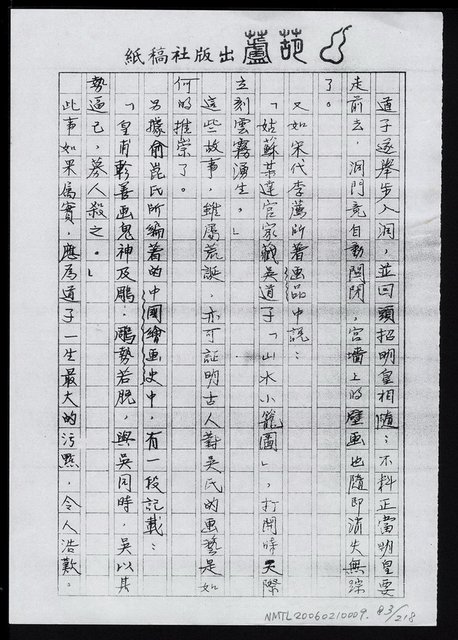 葫蘆出版社稿紙
道子遂舉步入洞，並回頭招明皇相隨；不料正當明皇要
走前去，洞門竟自動関閉，宮墻上的壁画也隨即消失無踪
了。
又如宋代李廌所著画品中說：
「姑蘇某達官家藏吳道子「山水小籠圖」，打開時天際
立刻雲霧湧生。」
這些故事，雖屬荒誕，亦可証明古人對吳氏的画藝是如
何的推崇了。
另據俞崑氏所編著的中國繪画史中，有一段記載：
「皇甫軫善画鬼神及鵰．鵰勢若脫，與吳同時，吳以其
勢逼己，募人殺之。」
此事如果屬實，應為道子一生最大的污點，令人浩歎。
NMTL20060210009. 93/218